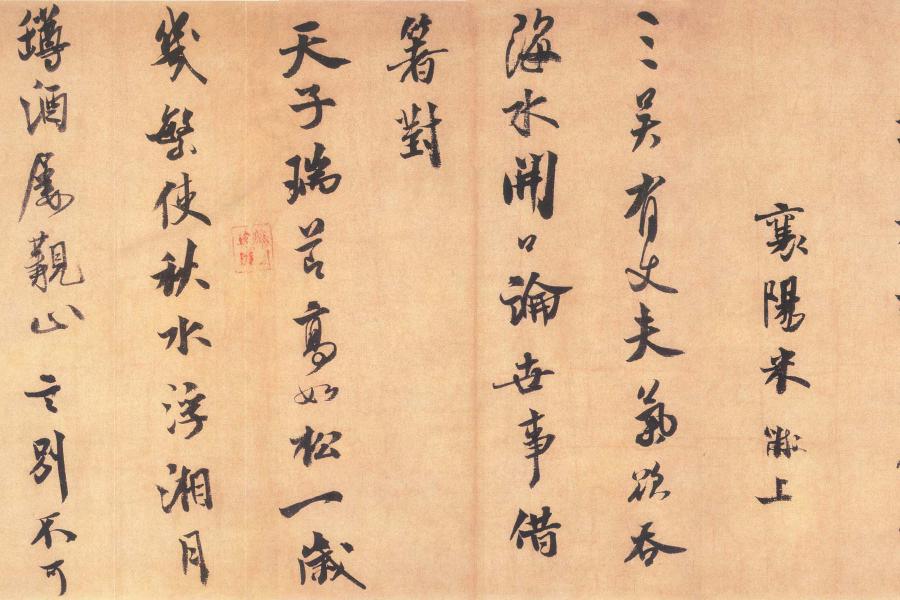 襄陽米黻上
三吴有丈夫氣欲吞
海水開口論世事借
箸對
天子瑞節高如松一歲
幾繁使秋水浮湘月
罇酒屡觀山言別不可